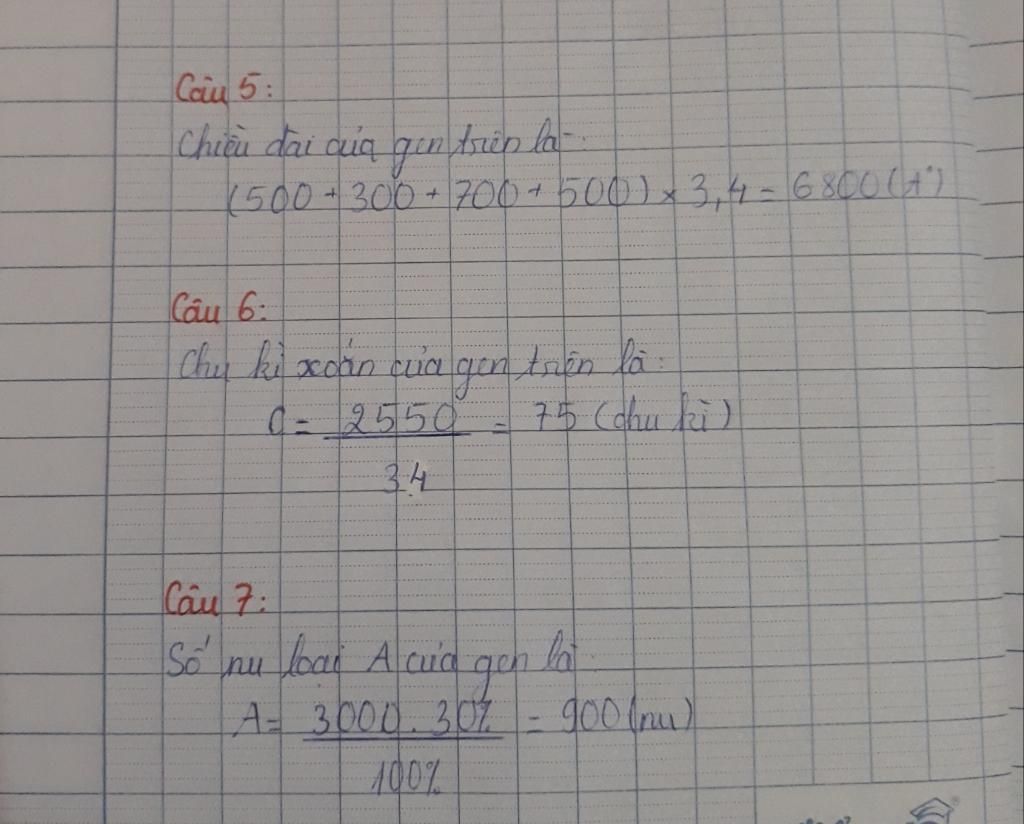 Câu 5:
Chiều dài của gen trên là:
(500 + 300 + 700 + 500) × 3,4 = 6800 (A°)
Câu 6:
Chu kì xoắn của gen trên là:
C = 2550 = 75 (chu kì)
34
Câu 7:
Số nu loại A của gen là:
A = 3000 . 30% = 900 (nu)
100%